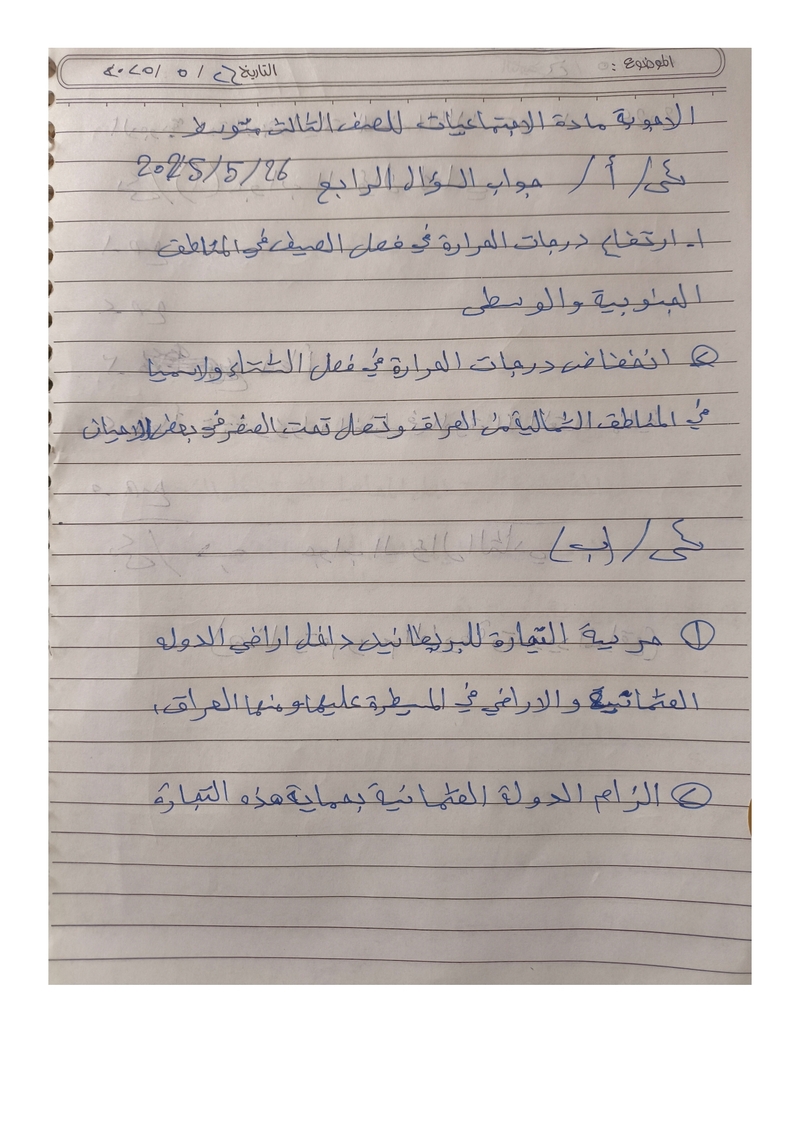 الموضوع :
التاريخ ٢٦ / ٥ / ٢٠٢٥
الاجوبة مادة الاجتماعيات للصف الثالث متوسط .
س٤ / أ / جواب السؤال الرابع 2025/5/26
١- ارتفاع درجات الحرارة في فصل الصيف في المناطق
الجنوبية والوسطى
② انخفاض درجات الحرارة في فصل الشتاء ولاسيما
في المناطق الشمالية من العراق وتصل تحت الصفر في بعض الاحيان
س٤ / (ب)
① حرية التجارة للبريطانين داخل اراضي الدوله
العثمانية والاراضي في المسيطرة عليها ومنها العراق ،
② الزام الدولة العثمانية بحماية هذه التجارة